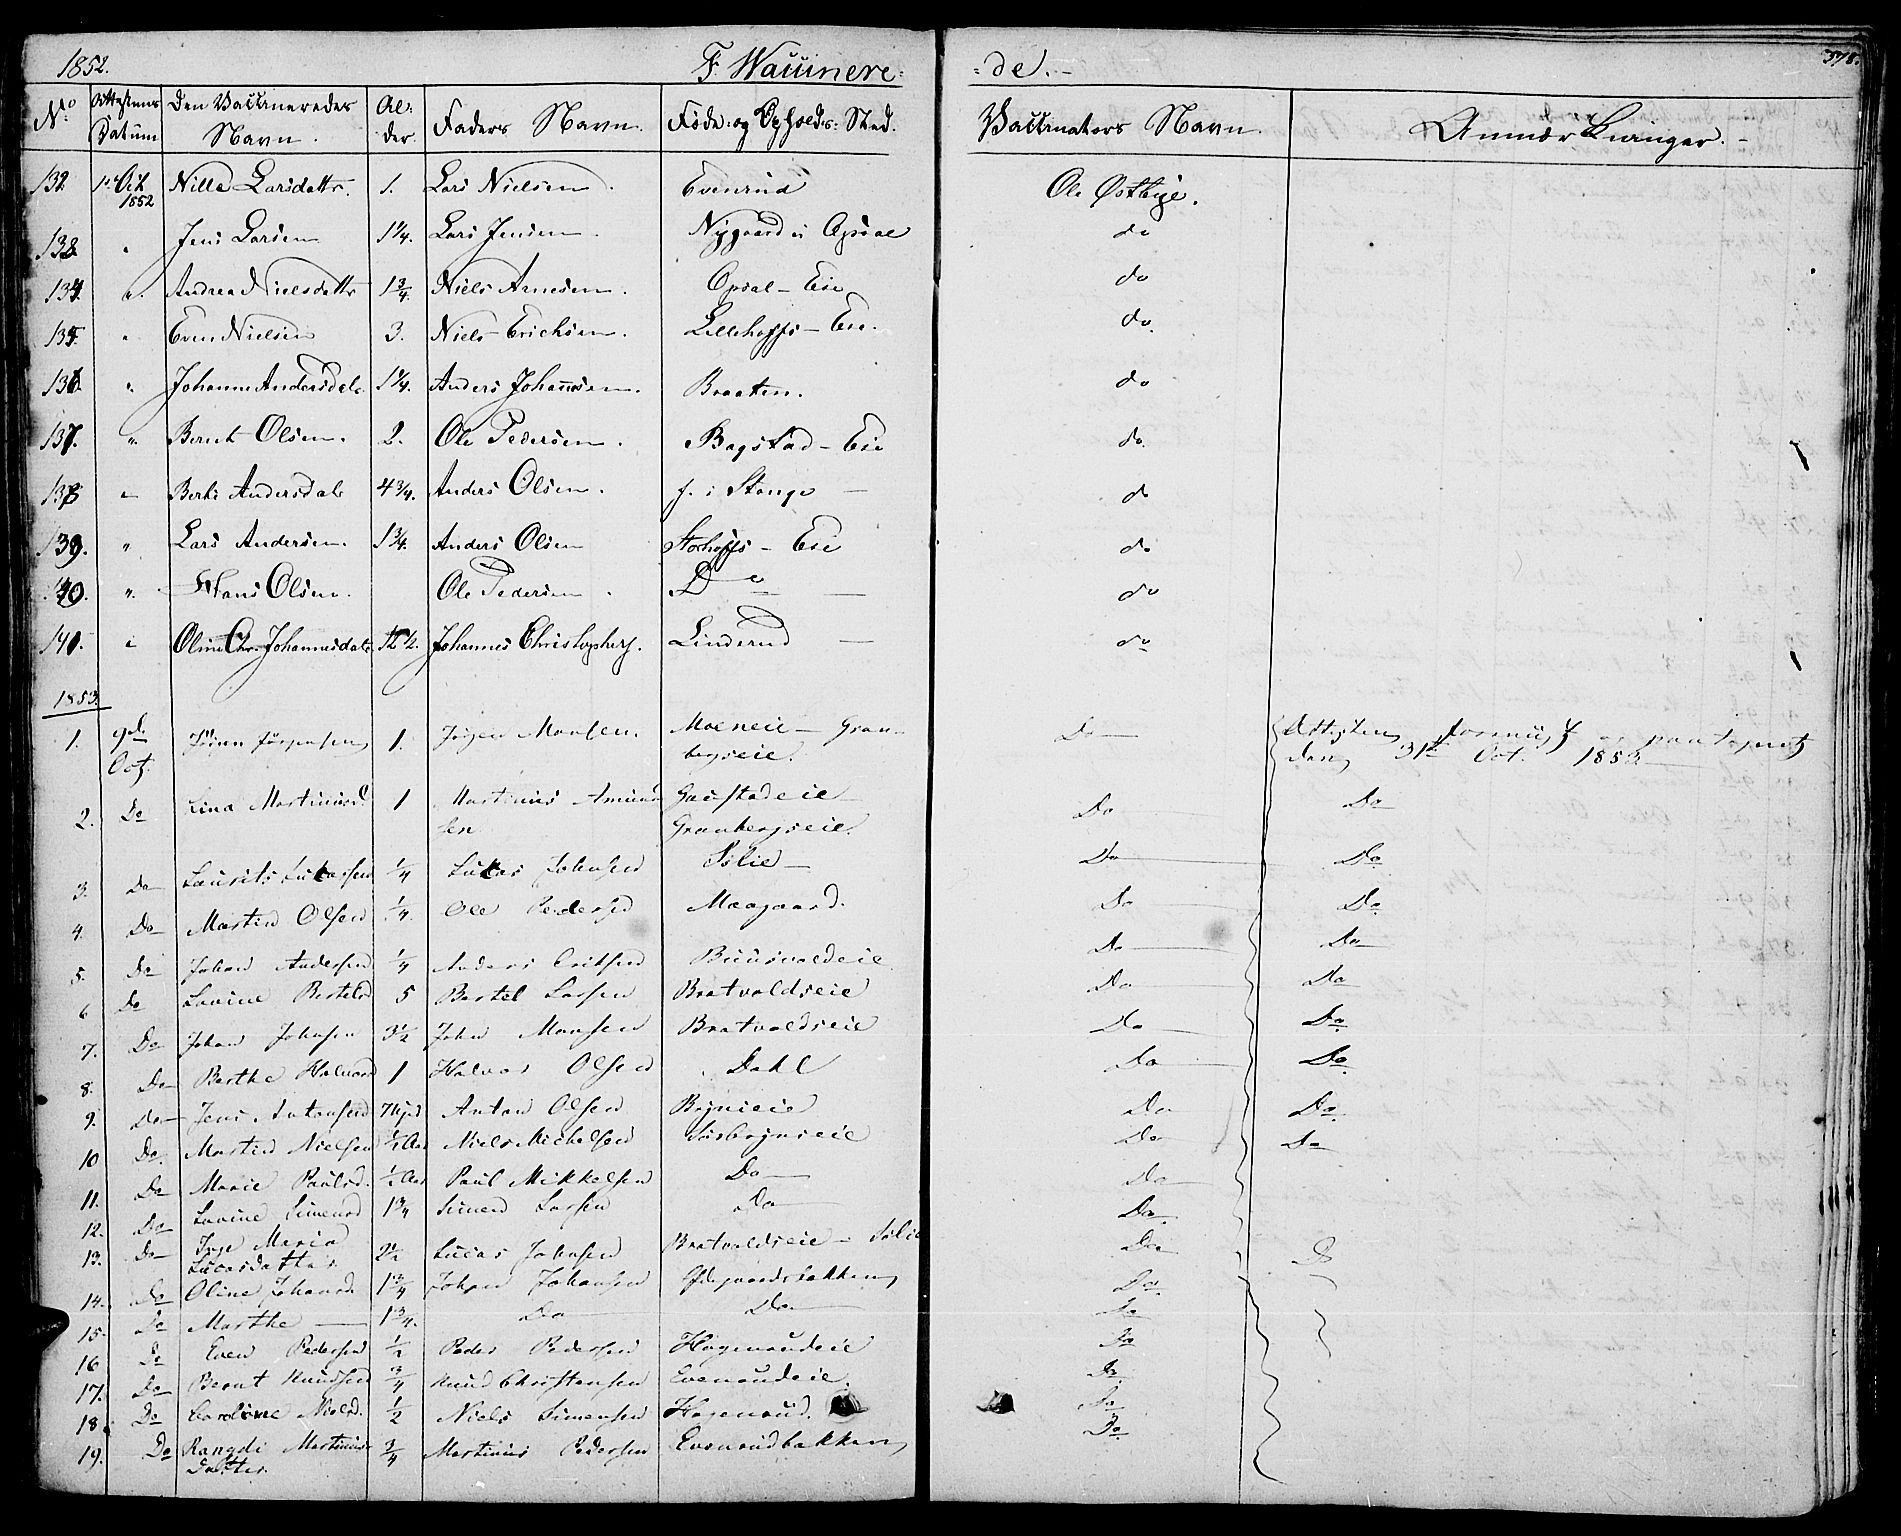 1852. F. Vaccinere= =de. 378.
No. Attestens Datum Den Vaccineredes Navn. Al-der. Faders Navn. Føde- og Opholds-Sted. Vaccinators Navn. Anmærkninger.
132. 1ste Oct 1852 Nille Larsdattr. 1. Lars Nielsen. Evenrud Ole Østbye.
133. " Jens Larsen 1 1/4. Lars Jensen. Nygaard u Opsal do
134. " Andrea Nielsdattr 1 3/4. Niels Arnesen. Opsal-Eie do
135. " Even Nielsen 3. Niels Erichsen. Lillehoffs-Eie. do.
136. " Johanne Andersdatr 1 1/4. Anders Johannsen. Braaten. do
137. " Bernt Olsen. 2. Ole Pedersen. Bagstad-Eie do.
138 " Berte Andersdatr 4 3/4. Anders Olsen. f. i Stange — do
139. " Lars Andersen. 1 3/4. Anders Olsen Storhoffs-Eie do
140. " Hans Olsen. Ole Pedersen. Do — do
141. " Oline Chr. Johannesdatr 1/2. Johannes Christophers. Linderud — do
1853.
1. 9de Oct. Jørgen Jørgensen 1. Jørgen Monsen. Moeneie - Gran- Do {Attesten
bergseie. den 31te Oct. 1853
2. Do Lina Martinusd 1 Martinus Amund Gaustadeie Do Do
sen Granbergseie.
3. Do Laurits Lukassen 1/4 Lukas Johnsen Sølie Do Do
4. Do Martin Olsen 1/4. Ole Pedersen Moegaard. Do Do
5. Do Johan Andersen 1/4 Anders Eriksen Do Do
6 Do Lovine Bertelsd 5 Bertel Larsen Bratvoldseie Do Do
7. Do Johan Johnsen 3 1/2 John Monsen Bratvoldseie Do Do
8. Do Berthe Halvorsd 1 Halvor Olsen Dahl Do Do
9. Do Jens Antonsen Anton Olsen Do Do
10 Do. Martin Nielsen 1/2 Aar Niels Michelsen Do Do
11. Do Marie Paulsd. 1/2 Aar Paul Mikkelsen Do Do
12. Do Lovine Simensd 1 3/4 Simen Larsen Do Do.
13. Do Inge Maria 2 1/2 Lucas Johnsen Bratvoldseie - Sølie Do
Lucasdatter.
14. Do Oline Johansd. 1 3/4 Johan Johansen Do.
15. Do Marthe — 1 3/4. Do Do Do
16 Do Even Pedersen 1/2 Peder Pedersen Hagenrudeie Do
17. Do Bernt Knudsen 3/4 Knud Christensen Evenrudeie. Do.
18. Do Caroline Nielsd. 1/2 Niels Simensen Hagenrud. Do
19. Do Rangdi Martinus 3/4 Martinus Pedersen Evenrudbakken Do.
Datter.